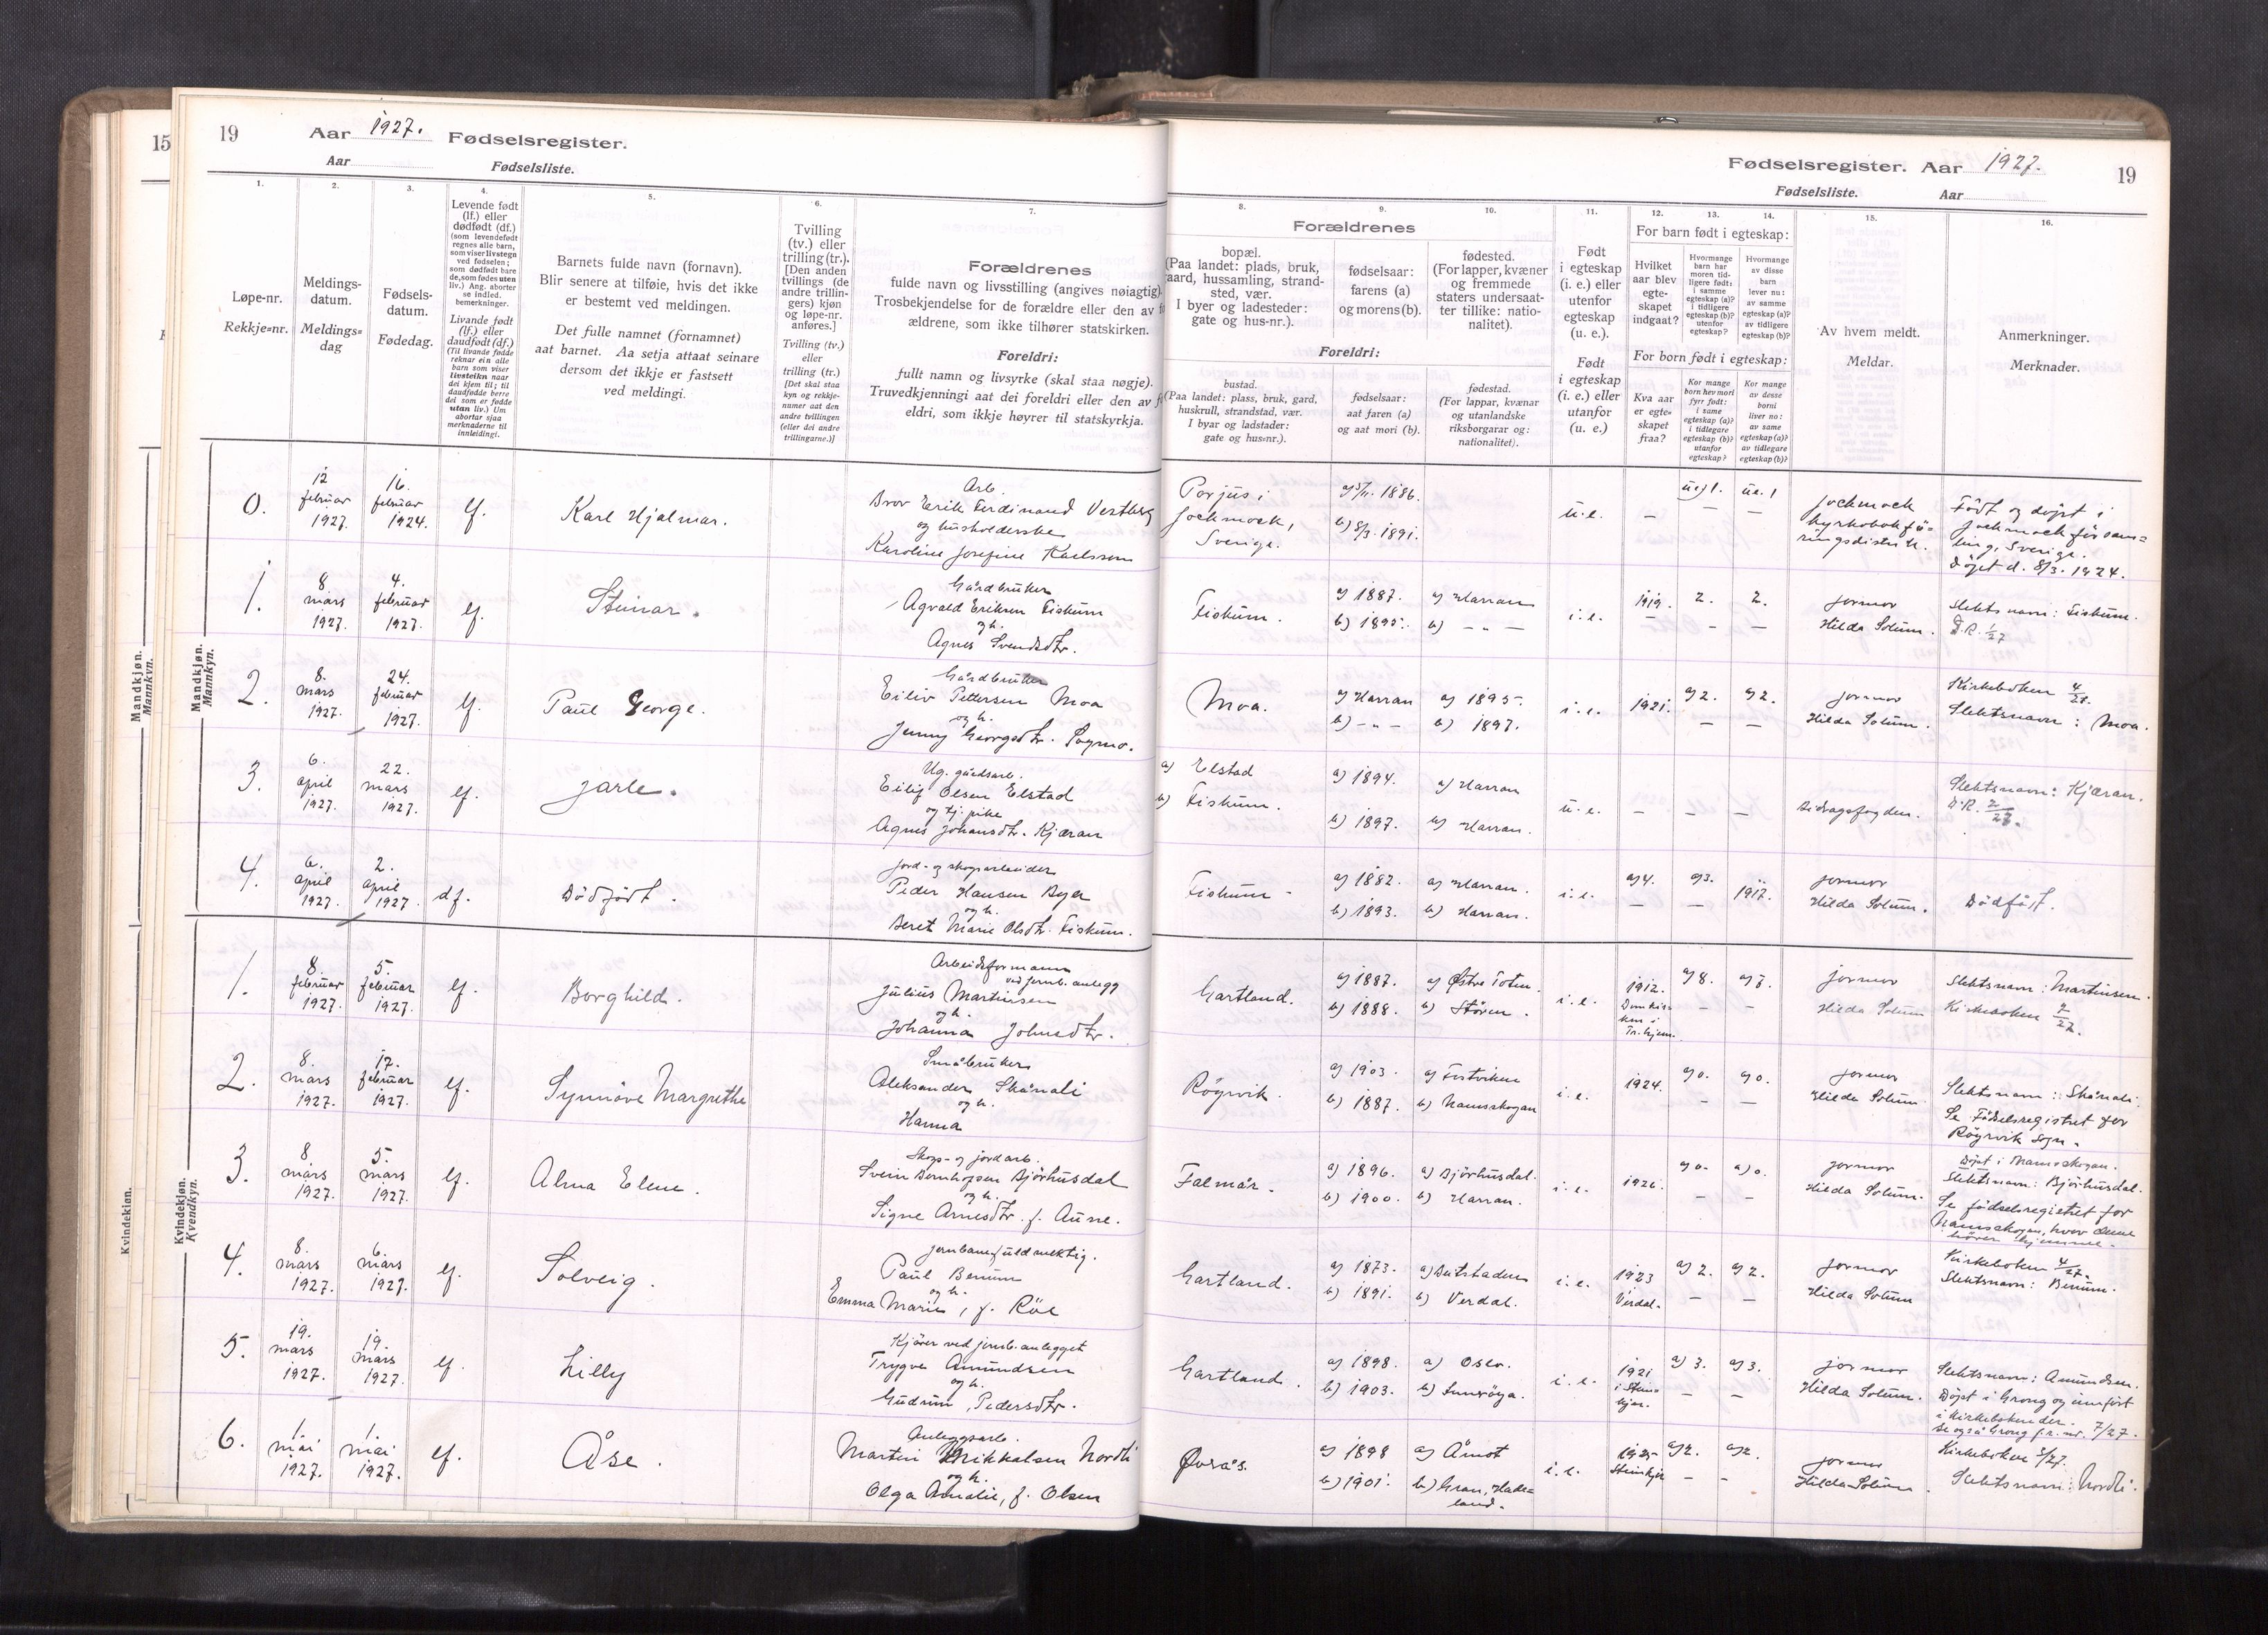 15
19
Aar 1927. Fødselsregister.
Aar Fødselsliste.
1.
2.
3.
4.
5.
6.
7.
Løpe-nr.
Rekkje=nr.
Meldings-
datum.
Meldings=
dag
Fødsels-
datum.
Fødedag.
Levende født
(lf.) eller
dødfødt (df.)
(som levendefødt
regnes alle barn,
som viser livstegn
ved fødselen;
som dødfødt bare
de, som fødes uten
liv.) Ang. aborter
se indled.
bemerkninger.
Livande født
(lf.) eller
daudfødt (df.)
(Til livande fødde
reknar ein alle
barn som viser
livsteikn naar
dei kjem til; til
daudfødde berre
dei som er fødde
utan liv.) Um
abortar sjaa
merknaderne til
innleidingi.
Barnets fulde navn (fornavn).
Blir senere at tilføie, hvis det ikke
er bestemt ved meldingen.
Det fulle namnet (fornamnet)
aat barnet. Aa setja attaat seinare
dersom det ikkje er fastsett
ved meldingi.
Tvilling
(tv.) eller
trilling (tr.).
[Den anden
tvillings (de
andre trillin-
gers) kjøn
og løpe-nr.
anføres.]
Tvilling (tv.)
eller
trilling (tr.)
[Det skal staa
kyn og rekkje-
numer aat den
andre tvillingen
(eller dei andre
trillingarne.)]
Forældrenes
fulde navn og livsstilling (angives nøiagtig)
Trosbekjendelse for de forældre eller den av
ældrene, som ikke tilhører statskirken.
Foreldri:
fullt namn og livsyrke (skal staa nøgje).
Truvedkjenningi aat dei foreldri eller den av
eldri, som ikkje høyrer til statskyrkja.
Mandkjøn.
Mannkyn.
Mandkjøn.
Mannkyn.
0.
12
februar
1927.
16.
februar
1924.
lf.
Karl Hjalmar.
Arb.
Bror Erik Ferdinand Vestberg
og husholderske
Karoline Josefine Karlsson
1.
8.
mars
1927.
4.
februar
1927.
lf.
Steinar.
Gårdbruker
Agvald Eriksen Fiskum
og h.
Agnes Svendsdtr.
2.
8.
mars
1927.
24.
februar
1927.
lf.
Paul George.
Gårdbruker
Eiliv Pettersen Moa
og h.
Jenny Georgsdtr. Sogmo.
3.
6.
april
1927.
22.
mars
1927.
lf.
Jarle.
Ug. gårdsarb.
Eilif Olsen Elstad
og tj. pike
Agnes Johansdtr. Kjæran
4.
6.
april
1927.
2.
april
1927.
df.
Dødfødt.
Jord- og skogsarbeider
Peder Hansen Øyer
og h.
Beret Marie Olsdtr. Fiskum.
Kvindekjøn.
Kvindekjøn.
Kvendkyn.
1.
8.
februar
1927.
5.
februar
1927.
lf.
Borghild.
Arbeidsformann
ved jernb.anlegg
Julius Martinsen
og h.
Johanna Johnsdtr.
2.
8.
mars
1927.
17.
februar
1927.
lf.
Synnøve Margrethe
Småbruker
Aleksander Skånali
og h.
Hanna
3.
8.
mars
1927.
5.
mars
1927.
lf.
Alma Elene.
Skogs- og jordarb.
Svein Bernhofsen Bjørhusdal
og h.
Signe Arnesdtr. f. Aune.
4.
8.
mars
1927.
6.
mars
1927.
lf.
Solveig.
Jernbanefuldmektig.
Paul Benum
og h.
Emma Marie, f. Röe
5.
19.
mars
1927.
19.
mars
1927.
lf.
Lilly
Kjører ved jernb.anlegget
Trygve Amundsen
og h.
Gudrun, Pedersdtr.
6.
1.
mai
1927.
1.
mai
1927.
lf.
Åse.
Anleggsarb.
Martin Mikkelsen Nordli
og h.
Olga Amalie, f. Olsen
Fødselsregister. Aar 1927.
19
Fødselsliste. Aar
8.
9.
10.
11.
12.
13.
14.
15.
16.
Forældrenes
bopæl.
(Paa landet: plads, bruk,
gaard, hussamling, strand-
sted, vær.
I byer og ladesteder:
gate og hus-nr.).
fødselsaar:
farens (a)
og morens (b).
fødested.
(For lapper, kvæner
og fremmede
staters undersaat-
ter tillike: natio-
nalitet).
Foreldri:
bustad.
(Paa landet: plass, bruk, gard,
huskrull, strandstad, vær.
I byar og ladstader:
gate og hus=nr.).
fødselsaar:
aat faren (a)
og aat mori (b).
fødestad.
(For lappar, kvænar
og utanlandske
riksborgarar og:
nationalitet).
Født
i egteskap
(i. e.) eller
utenfor
egteskap
(u. e.).
Født
i egteskap
(i. e.) eller
utanfor
(u. e.)
For barn født i egteskap:
Hvilket
aar blev
egte-
skapet
indgaat?
Hvormange
barn har
moren tid-
ligere født:
i samme
egteskap (a)?
i tidligere
egteskap (b)?
utenfor
egteskap?
Hvormange
av disse
barn
lever nu:
av samme
egteskap (a)?
av tidligere
egteskap (b)?
For born født i egteskap:
Kva aar
er egte-
skapet
fraa?
Kor mange
born hev mori
fyrr født:
i same
egteskap (a)?
i tidlegare
egteskap (b)?
utanfor
egteskap?
Kor mange
av desse
borni
liver no:
av same
egteskap (a)?
av tidlegare
egteskap (b)?
Av hvem meldt.
Meldar.
Anmerkninger.
Merknader.
Porjus i
Jockmock,
Sverige.
a) 5/11. 1886.
b) 8/3. 1891.
u. e.
—
u.e) 1.
—
u.e. 1
—
Jockmock
kyrkobokfö-
ringsdistrikt.
Født og døpt i
Jockmock försam=
ling, Sverige.
Døpt d. 8/3. 1924.
Fiskum.
a) 1887.
b) 1895.
a) Harran
b) — „ —
i. e.
1919.
—
2.
—
2.
—
Jormor
Hilda Solum.
Slektsnavn: Fiskum.
D.R. 1/27
Moa.
a) Harran
b) — „ —
a) 1895.
b) 1897.
i. e.
1921.
a) 2.
—
a) 2.
—
Jormor
Hilda Solum.
Kirkeboken 4/27.
Slektsnavn: Moa.
a) Elstad
b) Fiskum.
a) 1894.
b) 1897.
a) Harran
b) Harran.
u. e.
—
—
—
Bidragsfogden.
Slektsnavn: Kjæran.
D.R. 2/27.
Fiskum
a) 1882.
b) 1893.
a) Harran.
b) Harran.
i. e.
a) 4.
—
a) 3.
—
1917.
Jormor
Hilda Solum.
Dødfødt.
Gartland.
a) 1887.
b) 1888.
a) Østre Toten.
b) Støren.
i. e.
1912.
Domkir-
ken i
Tr.hjem.
a) 8.
—
a) 7.
—
Jormor
Hilda Solum
Slektsnavn: Martinsen.
Kirkeboken 2/27.
Røyrvik.
a) 1903.
b) 1887.
a) Tustviken
b) Namsskogan
i. e.
1924.
a) 0.
—
a) 0.
—
Jormor
Hilda Solum
Slektsnavn: Skånali.
Se Fødselsregistret for
Røyrvik sogn.
Falmår.
a) 1896.
b) 1900.
a) Bjørhusdal.
b) Harran.
i. e.
1926.
a) 0.
—
a) 0.
—
Jormor
Hilda Solum.
Døpt i Namsskogan.
Slektsnavn: Bjørhusdal.
Se fødselsregistret for
Namsskogan, hvor denne
hører hjemme.
Gartland.
a) 1873.
b) 1891.
a) Beitstaden
b) Verdal.
i. e.
1923
Verdal.
a) 2.
—
a) 2.
—
Jormor
Hilda Solum
Kirkeboken 4/27.
Slektsnavn: Benum.
Gartland.
a) 1898.
b) 1903.
a) Oslo.
b) Inderøya.
i. e.
1921
i Stein-
kjer.
a) 3.
—
a) 3.
—
Jormor
Hilda Solum.
Slektsnavn: Amundsen.
Døpt i Grong og innført
i kirkeboken der.
Se også Grong f.r. nr. 7/27.
Øvrås.
a) 1898
b) 1901.
a) Åmot
b) Gran, Hade-
land.
i. e.
1925
Steinkjer
a) 2.
—
a) 2.
—
Jormor
Hilda Solum.
Kirkeboken 5/27.
Slektsnavn: Nordli.